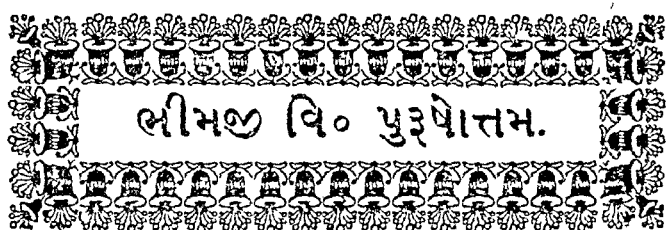 ભીમજી વિ૦ પુરૂષોત્તમ.